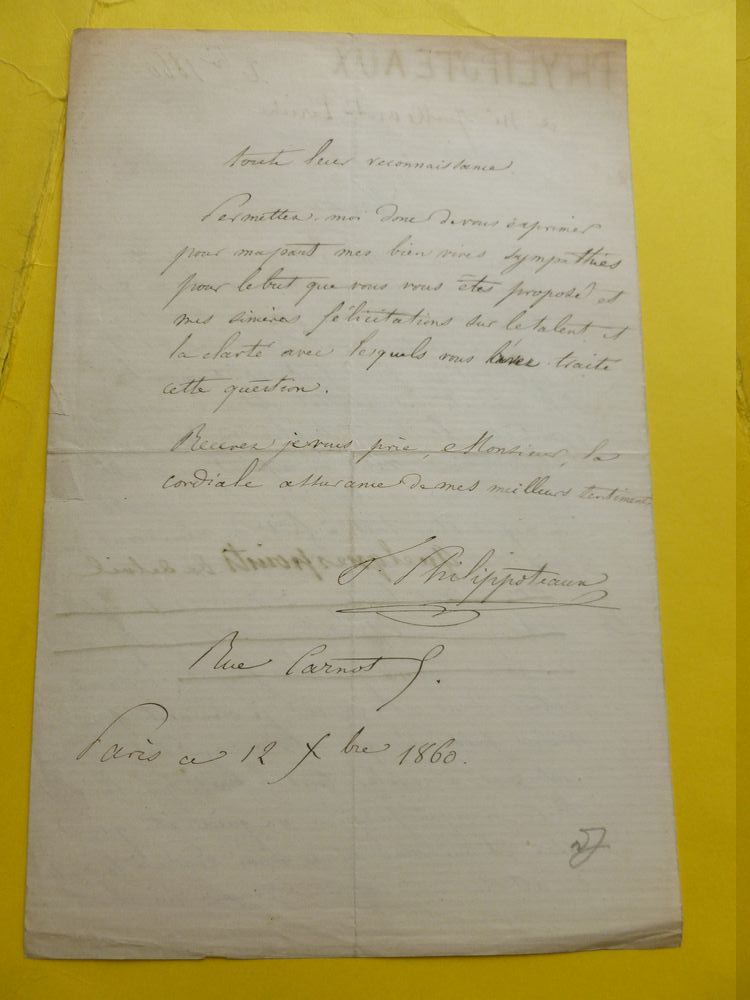 toute leur reconnaissance.
Permettez-moi donc de vous exprimer
pour ma part mes bien vives sympathies
pour le but que vous vous êtes proposé et
mes sincères félicitations sur le talent et
la clarté avec lesquels vous avez traité
cette question.
Recevez je vous prie, Monsieur, la
cordiale assurance de mes meilleurs sentiments
Philippoteaux
Rue Carnot
Paris ce 12 Xbre 1860.